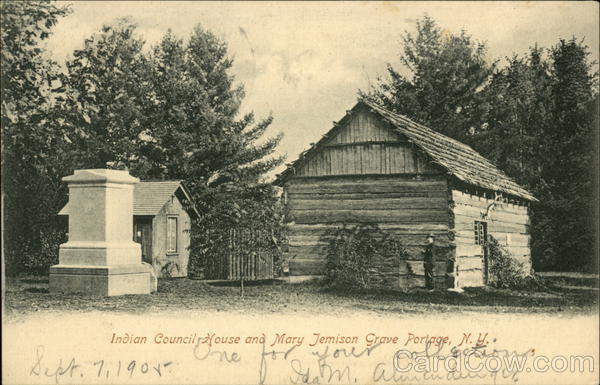 Indian Council House and Mary Jemison Grave Portage, N.Y.
Sept. 7, 1905. One for your collection.
Ida M.
CardCow.com